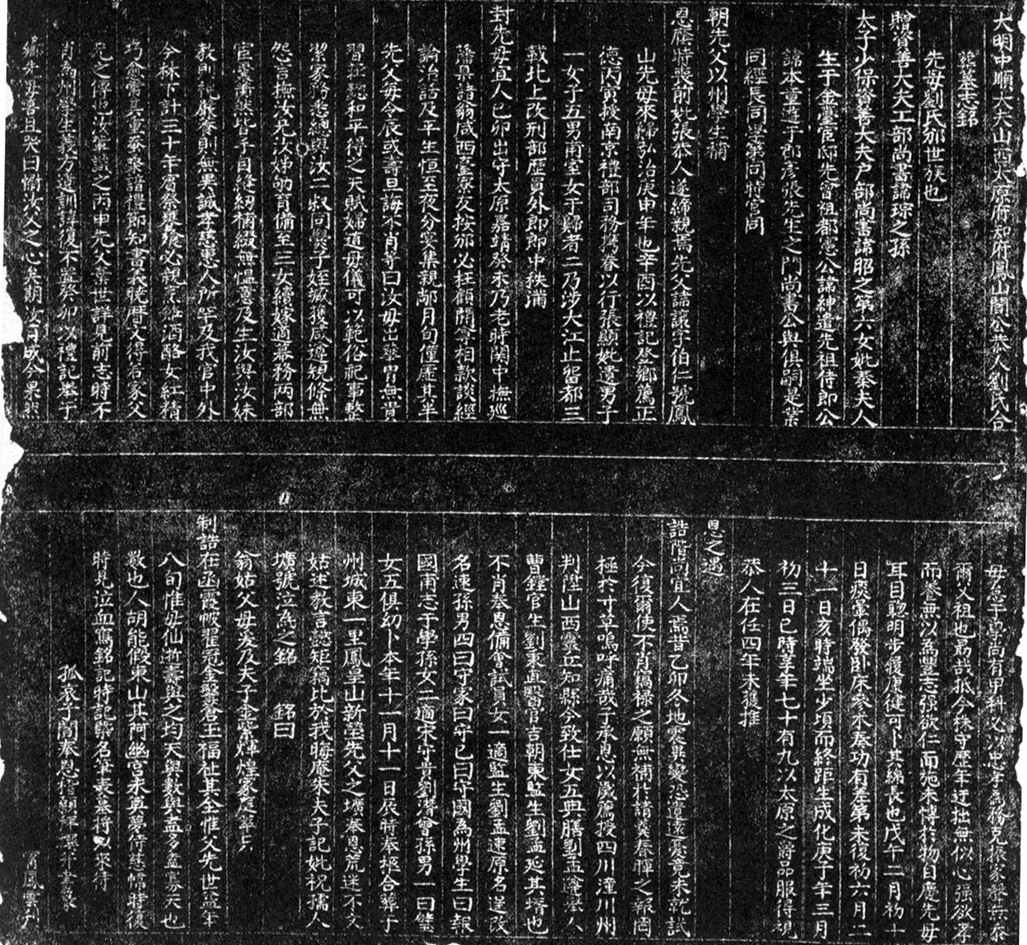 大明中順大夫山西太原府知府鳳山閻公恭人劉氏合
塟墓志銘
先母劉氏邠世族也
贈資善大夫工部尚書諱琮之孫
太子少保資善大夫戶部尚書諱昭之第六女妣秦夫人
生于金臺宦邸先曾祖都憲公諱紳遣先祖侍郎公
諱本董遣于郎彥張先生之門尚書公與俱嗣是業
同經長同舉第同時官同
朝先父以州學生補
恩廕時喪前妣張恭人遂締親焉先父諱讓字伯仁號鳳
山先母來歸弘治庚申年也辛酉以禮記登鄉薦正
德丙寅授南京禮部司務携眷以行張顯妣遺男子
一女子五男甫室女于歸者二乃涉大江止留都三
載北上改刑部歷員外郎郎中秩滿
封先母宜人己卯出守太原嘉靖癸未乃老時關中撫巡
藩臬諸翁咸西臺寮友按邠必枉顧閒亭相款談經
論治詰及平生恒至夜分宴集親鄰月旬僅歷其半
先父每令辰或壽旦誨不肖等曰汝母出華冑無貴
習莊懿和平得之天賦婦道母儀可以範俗祀事整
潔家務悉總與汝二叔同爨子姪臧獲咸遵規條無
怨言撫汝兄汝姊劬育備至三女續嫁道暮務兩部
宦囊蕭然皆手自縫紉補綴無慍意及生汝與汝妹
教則視厥脊則無異誠孝慈惠人所罕及我宦中外
今林下計三十年賓祭裘飧必親烹飪酒醪女紅精
巧愈常其童泰泉誥禮節知書義脫曆文得名家父
兄之傳也汝輩識之丙申先父棄世詳見前志時不
肖為州學生義方遺訓諄復不置癸卯以禮記舉于
鄉先母喜且哭曰慟汝父之心矣朝汝有成今果然
毋怠于嵩尚有甲科必以忠孝為務克振家聲無忝
爾父祖也勗哉孤今秩守歷年迂拙無似心强欲孝
而養無以為豐志强欲仁而施未博於物自慶先母
耳目聰明步履康健可卜其綿長也戊午二月初十
日痰嵩偶發卧床參朮奏功有差第未復初六月二
十一日亥時端坐少頃而終距生成化庚子年三月
初三日巳時享年七十有九以太原之爵品服得視
恭人在任四年未獲推
恩之遇
誥階尚宜人焉昔乙卯冬地震異變恐遺遠虞竟未就試
今復爾使不肖稿祿之願無補於請冀奏暉之報罔
極於寸草嗚呼痛哉子承恩以歲薦授四川潼川州
判陞山西靈丘知縣今致仕女五典膳劉孟瀹溘人
曹鏜官生劉東直醫官吉朝東監生劉孟延其壻也
不肖奉恩備會試員女一適監生劉孟速原名逞改
名速孫男四曰守家曰守己曰守國為州學生曰報
國甫志于學孫女二適宋守貴劉濟曾孫男一曰壁
女五俱幼卜本年十一月十一日辰時奉柩合葬于
州城東一里鳳皇山新塋先父之壙奉恩荒迷不文
姑述教言懿矩稿比於我晦庵朱夫子記妣祝孺人
壙號泣為之銘 銘曰
翁姑父母爰及夫子金紫煇煌家庭寧只
制誥在函霞帔翟冠金鑿蒼玉福祉其全惟父先世益年
八旬惟母仙逝壽與之均天與數與孟多盍寡天也
數也人胡能假東山其阿幽宮承奠夢侍慈幃時復
時見泣血寫銘記時記縣名筆表墓將以求待
孤哀子閻奉恩